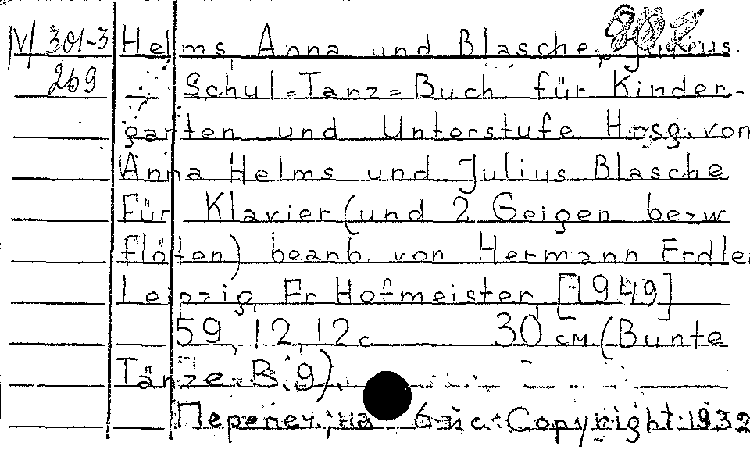 М 301-3 Helms, Anna und Blasche, Julius.
269 Schul-Tanz-Buch für Kinder-
garten und Unterstufe Hrsg. von
Anna Helms und Julius Blasche
Für Klavier (und 2 Geigen bezw
flöten) bearb. von Hermann Erdlen
Leipzig, Fr Hofmeister, [1949]
59, 12, 12 c 30 см (Bunte
Tänze. B. 9).
Перепеч. на 6-й с: Copyright 1932